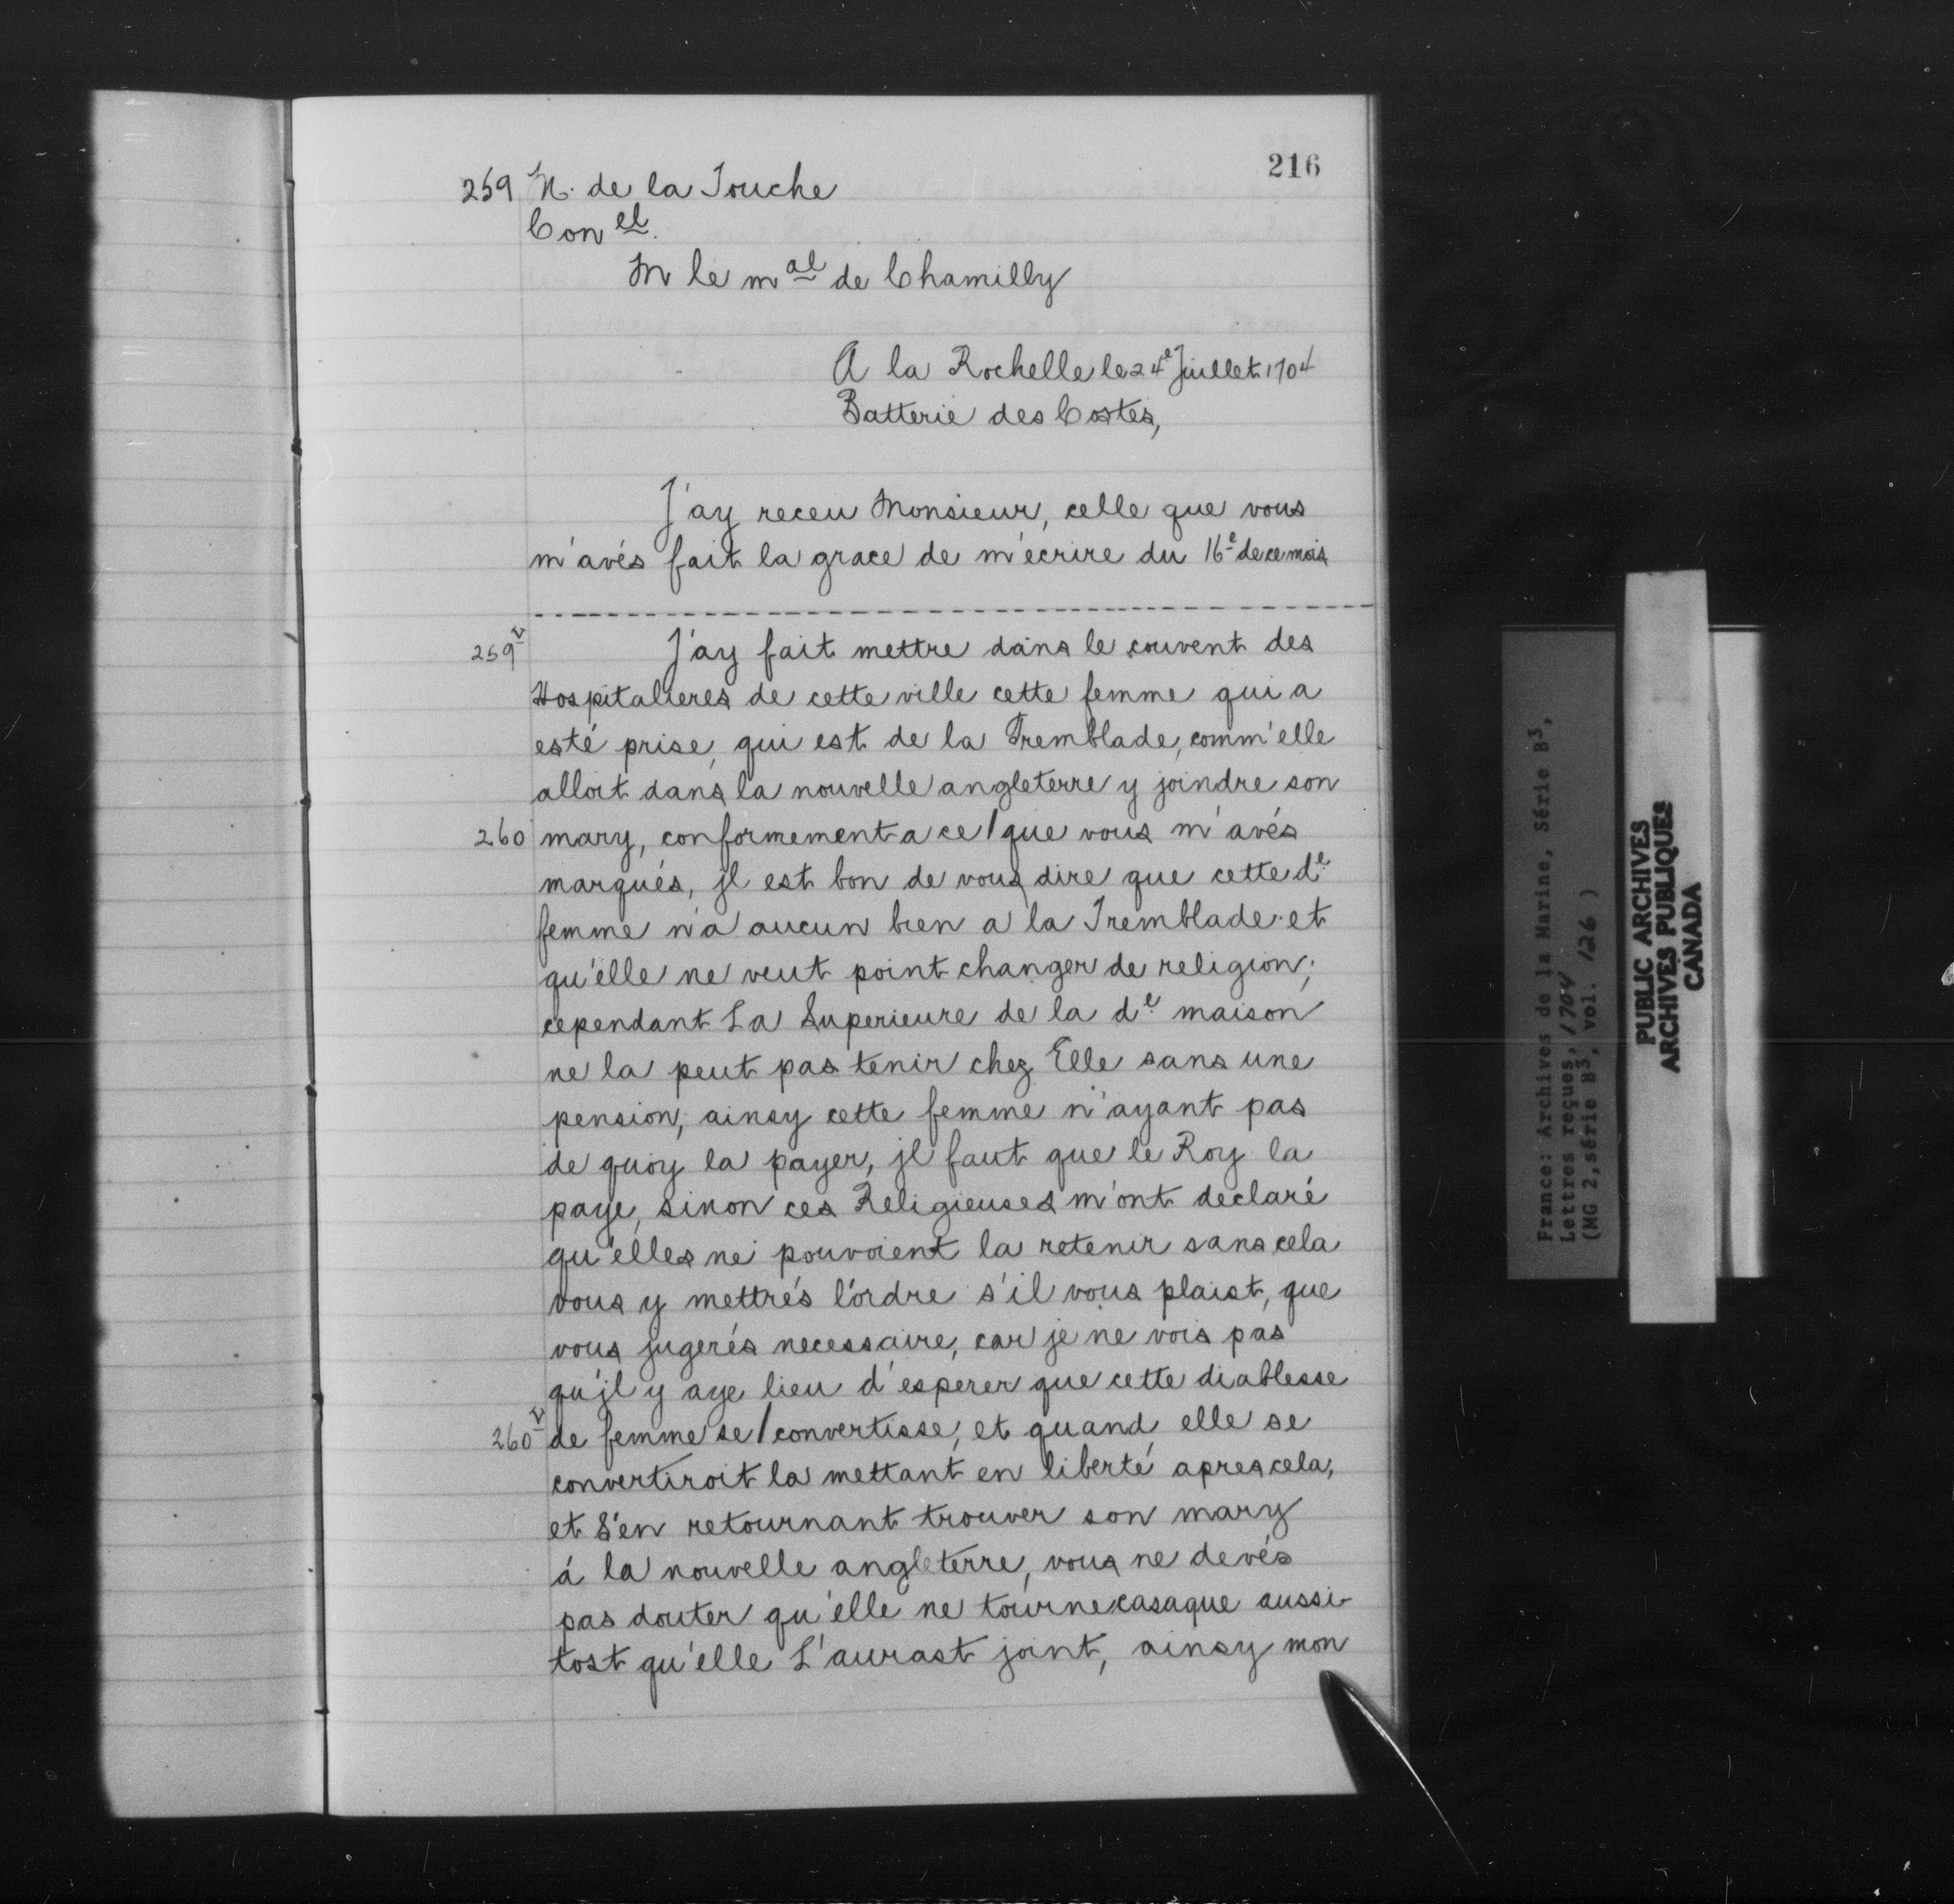 216
259 M. de la Touche
Con el.
M le m al de Chamilly
A la Rochelle le 24e Juillet 1704
Batterie des Costes,
J'ay receu Monsieur, celle que vous
m'avés fait la grace de m'écrire du 16e de ce mois
259v J'ay fait mettre dans le couvent des
Hospitalieres de cette ville cette femme qui a
esté prise, qui est de la Tremblade, comm'elle
alloit dans la nouvelle angleterre y joindre son
260 mary, conformement a ce / que vous m'avés
marqués, jl est bon de vous dire que cette de
femme n'a aucun bien a la Tremblade et
qu'elle ne veut point changer de religion;
cependant La Superieure de la de maison
ne la peut pas tenir chez Elle sans une
pension, ainsy cette femme n'ayant pas
de quoy la payer, jl faut que le Roy la
paye, sinon ces Religieuses m'ont declaré
qu'elles ne pouvoient la retenir sans cela
vous y mettrés l'ordre s'il vous plaist, que
vous jugerés necessaire, car je ne vois pas
qu'jl y aye lieu d'esperer que cette diablesse
260v de femme se / convertisse, et quand elle se
convertiroit la mettant en liberté apres cela,
et S'en retournant trouver son mary
á la nouvelle angleterre, vous ne devés
pas douter qu'elle ne tourne casaque aussi-
tost qu'elle L'aurast joint, ainsy mon
France: Archives de la Marine, Série B3,
Lettres reçues, 1704
(MG 2, série B3, vol. 126 )
PUBLIC ARCHIVES
ARCHIVES PUBLIQUES
CANADA